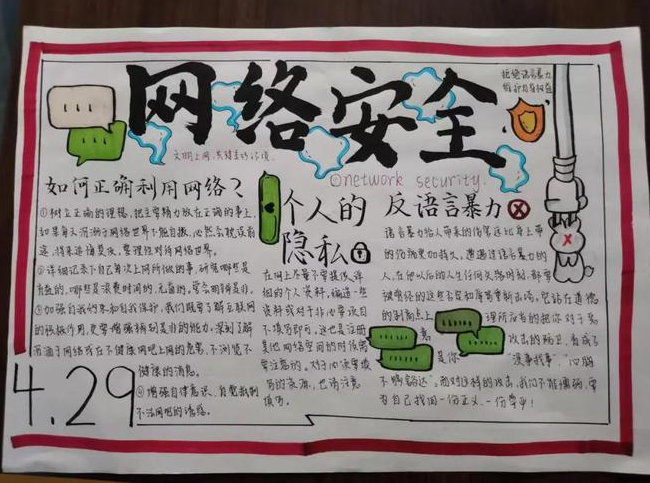 网络安全
拒绝语言暴力
维护自身权益
文明上网 共建美好环境
network security.
如何正确利用网络？
①树立正确的理想，把主要精力放在正确的事上，
如果每天沉溺于网络世界不能自拔，必然会耽误前
途，将来追悔莫及，要理性对待网络世界。
②详细记录下自己每次上网所做的事，研究哪些是
有益的，哪些是浪费时间的、无益的，学会明辨是非。
③加强自我约束和自我保护，我们既要了解互联网
的积极作用，更要增强辨别是非的能力，深刻了解
沉溺于网络或在不健康网吧上网的危害，不浏览不
健康的消息。
④增强自律意识，自觉抵制
不法网吧的诱惑。
4.29
个人的
隐私
在网上尽量不要提供详
细的个人资料，
资料或对于非必要项目
不填写即可，这也是注册
其他网络空间的时候需
要注意的，对于必须要填
写的资源，也请注意
填写。
反语言暴力
语言暴力给人带来的伤害远比身上带
的伤害更加持久，遭遇过语言暴力的
人，在他以后的人生任何关键时刻，都会
被曾经的这些否定和辱骂重新击垮，
的制高点上
理所应当的把你对于恶
意
攻击的防卫，看成了
是你
“没事找事”，“心胸
不够豁达”，面对这样的攻击，我们不能懦弱，要
为自己找回一份正义，一份尊严！